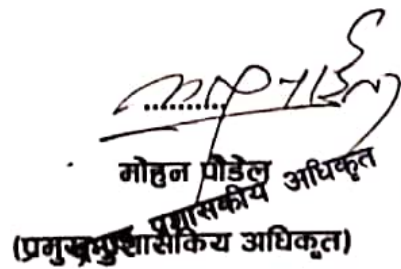 ..........
मोहन पौडेल
प्रमुख प्रशासकीय अधिकृत
(प्रमुख प्रशासकिय अधिकृत)